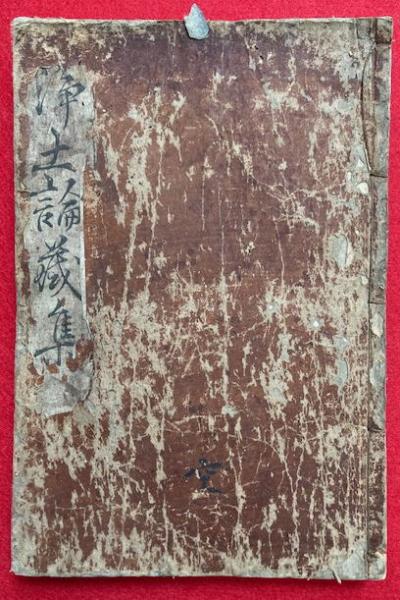 浄土論蔵集